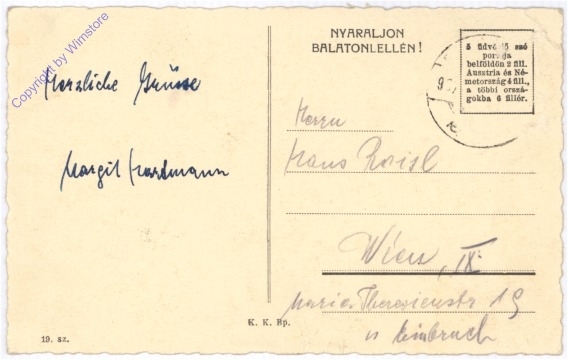 Copyright by Wimstore
NYARALJON
BALATONLELLÉN!
5 üdvözlő szó
portója
belföldön 2 fill.
Ausztria és Né-
metország 4 fill.,
a többi orszá-
gokba 6 fillér.
Herzliche Grüsse
Margit Hartmann
Herrn
Hans
Wien, IX.
Maria Theresienstr 19
K. K. Bp.
19. sz.